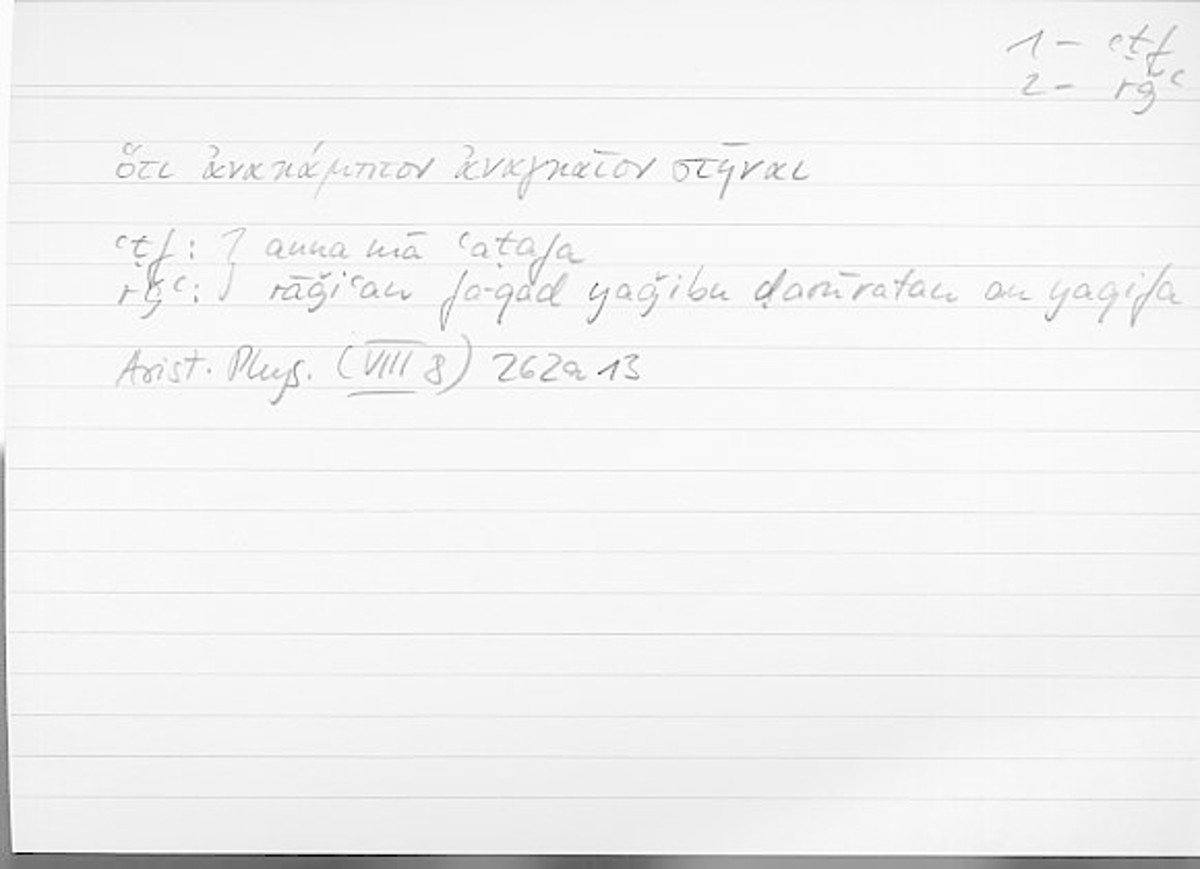 1 – ʿṭf
2 – rǧʿ
ὅτι ἀνακάμπτον ἀναγκαῖον στῆναι
ʿṭf: } anna mā ʿaṭafa
rǧʿ: } rāǧiʿan fa-qad yaǧibu ḍarūratan an yaqifa
Arist. Phys. (VIII 8) 262a13